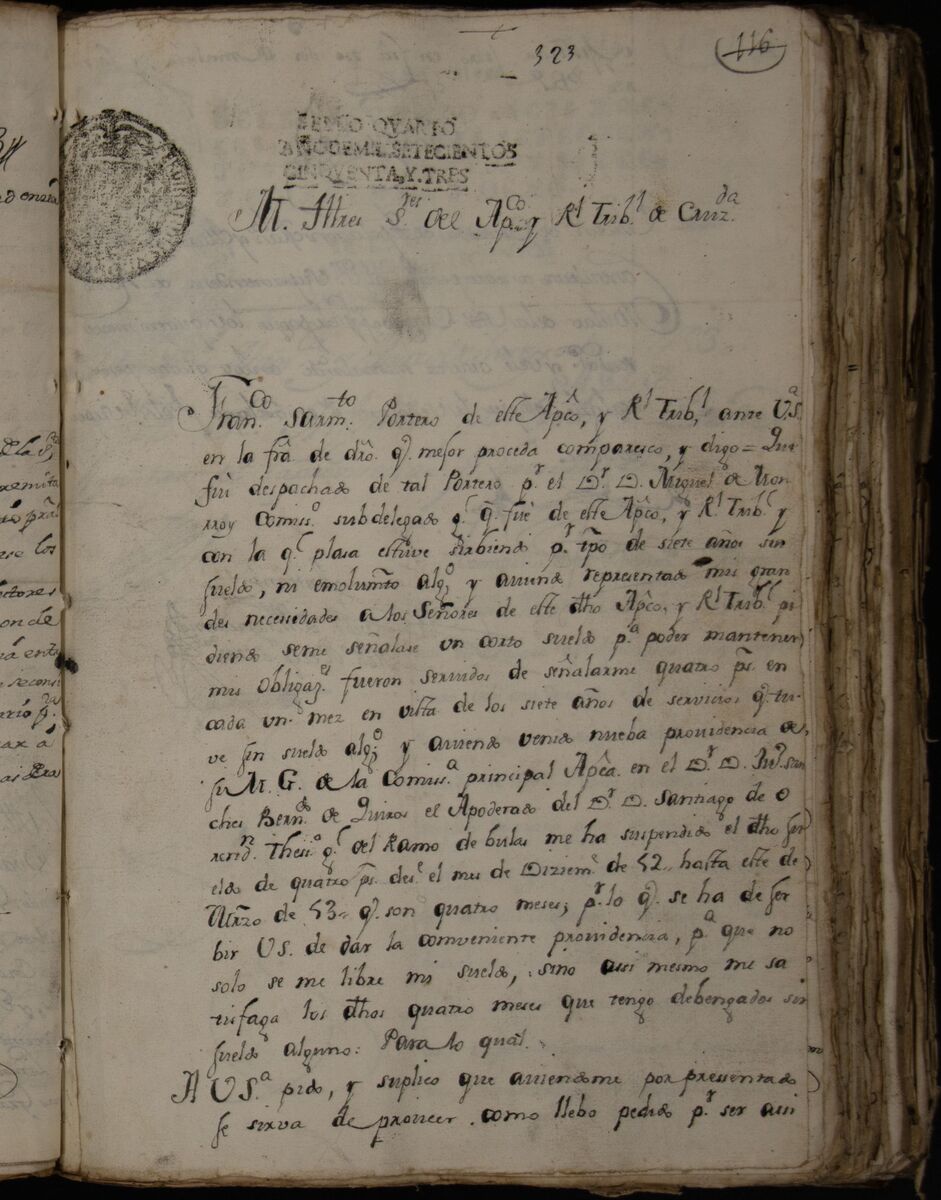 323
116
SELLO QVARTO
AÑO DE MIL SETECIENTOS
CINQVENTA, Y. TRES
M. Illtres S.res del Ap.co y R.l Trib.l de Cruz.da
Fran.co Sarm.to Portero de este Ap.co, y R.l Trib.l, ante V.S.a
en la fra de dro. q.e mejor proceda comparesco, y digo = Que
fui despachado de tal Portero p.r el D.r D. Miguel de Mon
rroy Comiss.o subdelegado g.l q.e fue de este Ap.co, y R.l Trib.l y
con la q.l plasa estuve sirbiendo p.r tpo de siete años sin
sueldo, ni emolum.to alg.o y aviendo representado mis gran
des necessidades a los Señores de este dho Ap.co, y R.l Trib.l pi
diendo seme señalase un corto sueldo p.a poder mantener
mis obligaz.s fueron servidos de señalarme quatro p.s en
cada un mez en vista de los siete años de servicios q.e tu-
ve sin sueldo alg.o; y aviendo venido nueba providencia de
su M. G. de la Comiss.a principal Ap.ca en el D.r D. Ju.o san
ches Bern.do de Quiros el Apoderado del D.r D. Santiago de O
rend.n Thess.o g.l del Ramo de bulas me ha suspendido el dho su
eldo de quatro p.s des.e el mes de Diziem.e de 52 hasta este de
Marzo de 53 q.e son quatro meses; p.r lo q.e se ha de ser
bir VS. de dar la conveniente providencia, p.a que no
solo se me libre mi sueldo, sino assi mesmo me sa
tisfaga los dhos quatro meses que tengo debengados sin
sueldo alguno: Para lo qual.
A VS.a pido, y suplico que aviendome por pressentado
se sirva de proveer como llebo pedido p.r ser assi